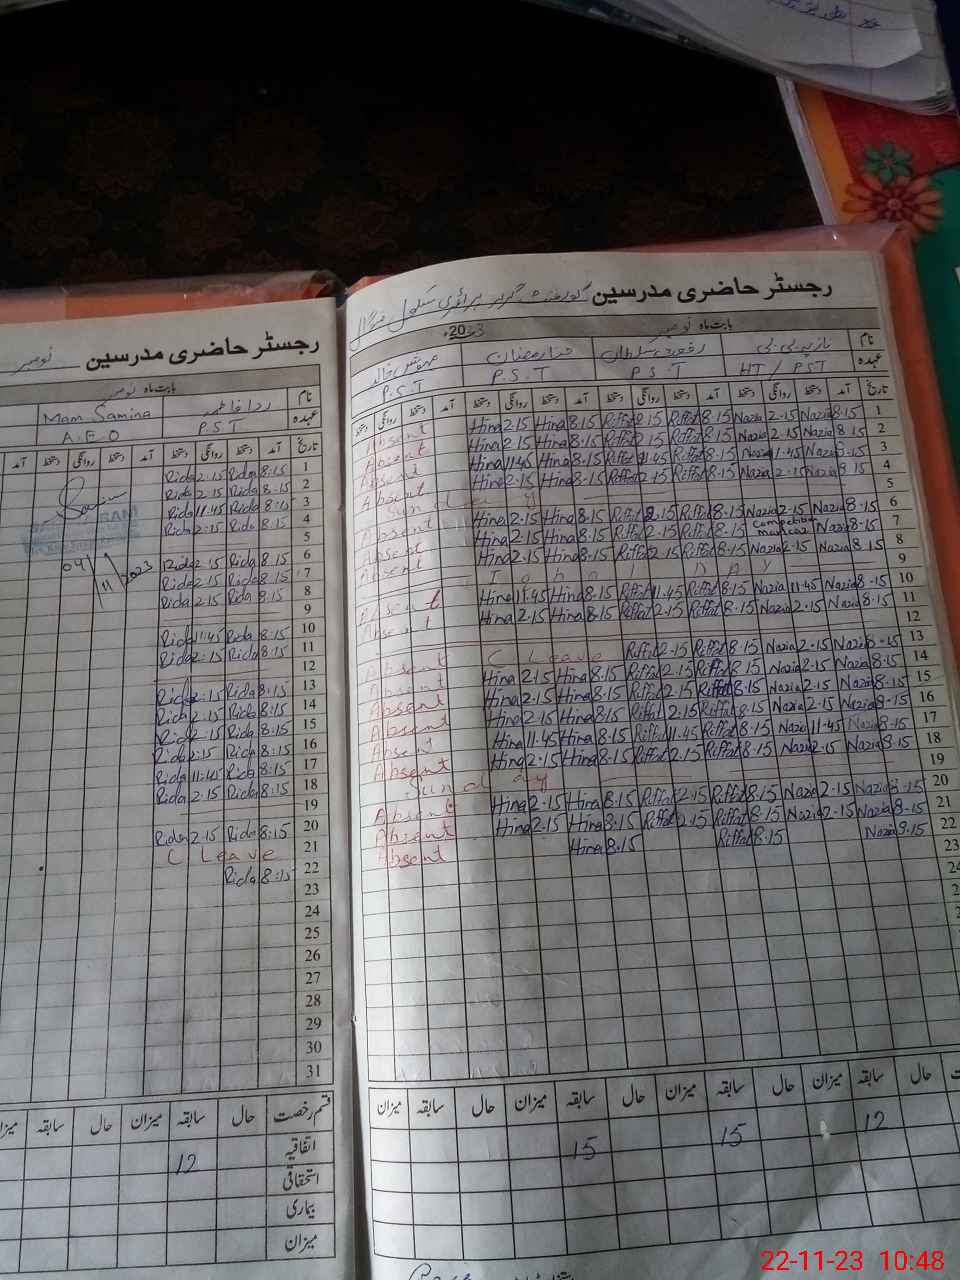 رجسٹر حاضری مدرسین گورنمنٹ گرلز پرائمری سکول
بابت ماہ نومبر 2023ء
نام نازیہ بی بی رفعت سلطان حنا رمضان مہوش خالد
عہدہ HT / PST P.S.T P.S.T P.S.T
تاریخ آمد دستخط روانگی دستخط آمد دستخط روانگی دستخط آمد دستخط روانگی دستخط آمد دستخط روانگی دستخط
Absent Hina 2.15 Hina 8.15 Riffat 2.15 Riffat 8.15 Nazia 2.15 Nazia 8.15 1
Absent Hina 2.15 Hina 8.15 Riffat 2.15 Riffat 8.15 Nazia 2.15 Nazia 8.15 2
Absent Hina 11.45 Hina 8.15 Riffat 11.45 Riffat 8.15 Nazia 11.45 Nazia 8.15 3
Absent Hina 2.15 Hina 8.15 Riffat 2.15 Riffat 8.15 Nazia 2.15 Nazia 8.15 4
Sunday 5
Absent Hina 2.15 Hina 8.15 Riffat 2.15 Riffat 8.15 Nazia 2.15 Nazia 8.15 6
Absent Hina 2.15 Hina 8.15 Riffat 2.15 Riffat 8.15 Nazia 8.15 7
Absent Hina 2.15 Hina 8.15 Riffat 2.15 Riffat 8.15 Nazia 2.15 Nazia 8.15 8
DAY 9
Absent Hina 11.45 Hina 8.15 Riffat 11.45 Riffat 8.15 Nazia 11.45 Nazia 8.15 10
Absent Hina 2.15 Hina 8.15 Riffat 2.15 Riffat 8.15 Nazia 2.15 Nazia 8.15 11
12
Absent C Leave Riffat 2.15 Riffat 8.15 Nazia 2.15 Nazia 8.15 13
Absent Hina 2.15 Hina 8.15 Riffat 2.15 Riffat 8.15 Nazia 2.15 Nazia 8.15 14
Absent Hina 2.15 Hina 8.15 Riffat 2.15 Riffat 8.15 Nazia 2.15 Nazia 8.15 15
Absent Hina 2.15 Hina 8.15 Riffat 2.15 Riffat 8.15 Nazia 2.15 Nazia 8.15 16
Absent Hina 11.45 Hina 8.15 Riffat 11.45 Riffat 8.15 Nazia 11.45 Nazia 8.15 17
Absent Hina 2.15 Hina 8.15 Riffat 2.15 Riffat 8.15 Nazia 2.15 Nazia 8.15 18
Sunday 19
Absent Hina 2.15 Hina 8.15 Riffat 2.15 Riffat 8.15 Nazia 2.15 Nazia 8.15 20
Absent Hina 2.15 Hina 8.15 Riffat 2.15 Riffat 8.15 Nazia 2.15 Nazia 8.15 21
Absent Hina 8.15 Riffat 8.15 Nazia 8.15 22
23
حال سابقہ میزان حال سابقہ میزان حال سابقہ میزان حال سابقہ میزان
12 15 15
رجسٹر حاضری مدرسین نومبر
بابت ماہ نومبر
نام ردا فاطمہ Mam Samina
عہدہ P.S.T A.E.O
تاریخ آمد دستخط روانگی دستخط آمد دستخط روانگی دستخط آمد
Rida 2:15 Rida 8:15 1
Rida 2:15 Rida 8:15 2
Rida 11:45 Rida 8:15 3
Rida 2:15 Rida 8:15 4
5
04/11/2023
Rida 2:15 Rida 8:15 6
Rida 2:15 Rida 8:15 7
Rida 2:15 Rida 8:15 8
9
Rida 11:45 Rida 8:15 10
Rida 2:15 Rida 8:15 11
12
Rida 2:15 Rida 8:15 13
Rida 2:15 Rida 8:15 14
Rida 2:15 Rida 8:15 15
Rida 2:15 Rida 8:15 16
Rida 11:45 Rida 8:15 17
Rida 2:15 Rida 8:15 18
19
Rida 2:15 Rida 8:15 20
C Leave 21
Rida 8:15 22
23
24
25
26
27
28
29
30
31
قسم رخصت حال سابقہ میزان حال سابقہ میزان
اتفاقیہ 12
استحقاقی
بیماری
میزان
22-11-23 10:48